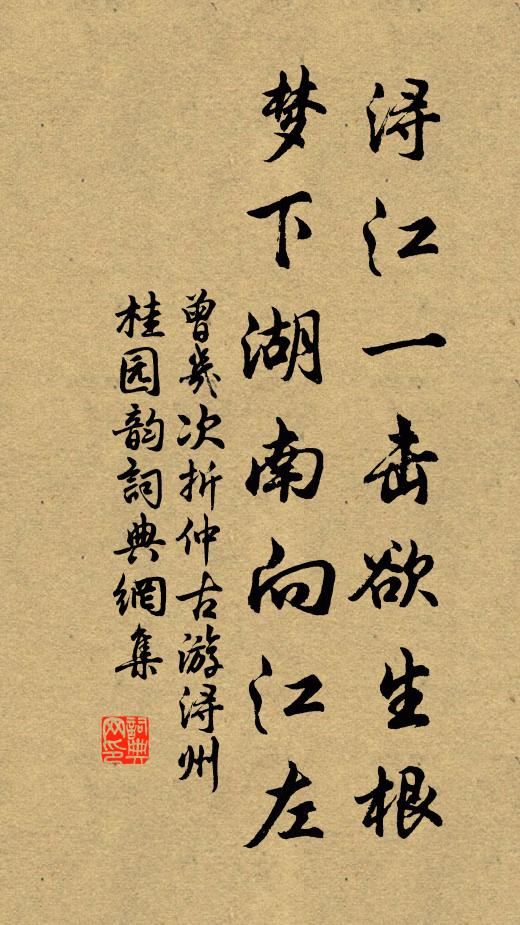 浔江一击欲生根
梦下湖南向江左
曾几次折仲古游浔州
桂园韵詞典網集
詞典网印